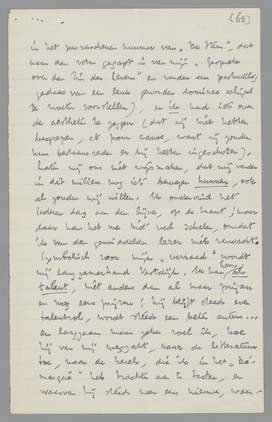 (63)
in het pas verschenen nummer van "De Stem", dat
naar den vorm gezapt is van mijn "gesprek
over den zin des levens" en verder een
gedaas van een leuk geworden dominee schijnt
te moeten voorstellen), en ik had iets over
de aesthetie te zeggen (dat zij niet hebben
begrepen, et pour cause, want zij zouden
hun bestaansreden er bij hebben ingeschoten).
Laten wij ons niet wijsmaken, dat wij verder
in dit milieu nog iets bewegen kunnen, ook
al zouden wij willen. Ik ondervind het
iederen dag aan den lijve, op de krant; maar
daar kan het me niet veel schelen, omdat
ik van den gemiddelden lezer niets verwacht.
Symbolisch voor mijn "verraad" wordt
mij langzamerhand Vestdijk. Ik kan hem, als
talent, niet anders dan al maar prijzen
en nog eens prijzen! hij blijft steeds even
talentvol, wordt steeds een beter auteur...
en langzaam maar zeker voel ik, hoe
hij van mij wegzakt, naar de litteratuur
toe, naar de heele, die ik in het "Dé-
masqué" heb trachten aan te tasten, en
waarvan hij steeds weer een nieuwe, waar-